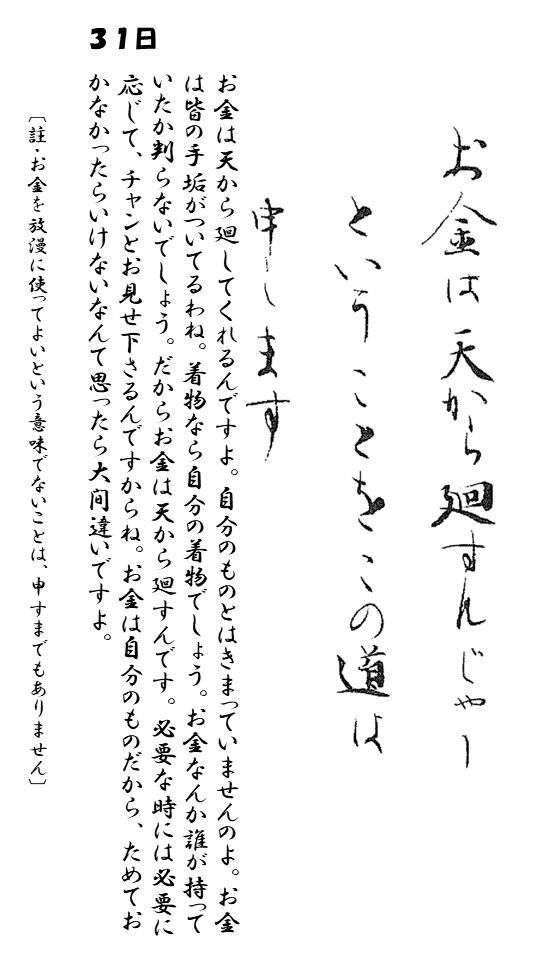 31日
お金は天から廻すんじゃー
ということをこの道は
申します
お金は天から廻してくれるんですよ。自分のものとはきまっていませんのよ。お金
は皆の手垢がついてるわね。着物なら自分の着物でしょう。お金なんか誰が持って
いたか判らないでしょう。だからお金は天から廻すんです。必要な時には必要に
応じて、チャンとお見せ下さるんですからね。お金は自分のものだから、ためてお
かなかったらいけないなんて思ったら大間違いですよ。
〔註・お金を放漫に使ってよいという意味でないことは、申すまでもありません〕